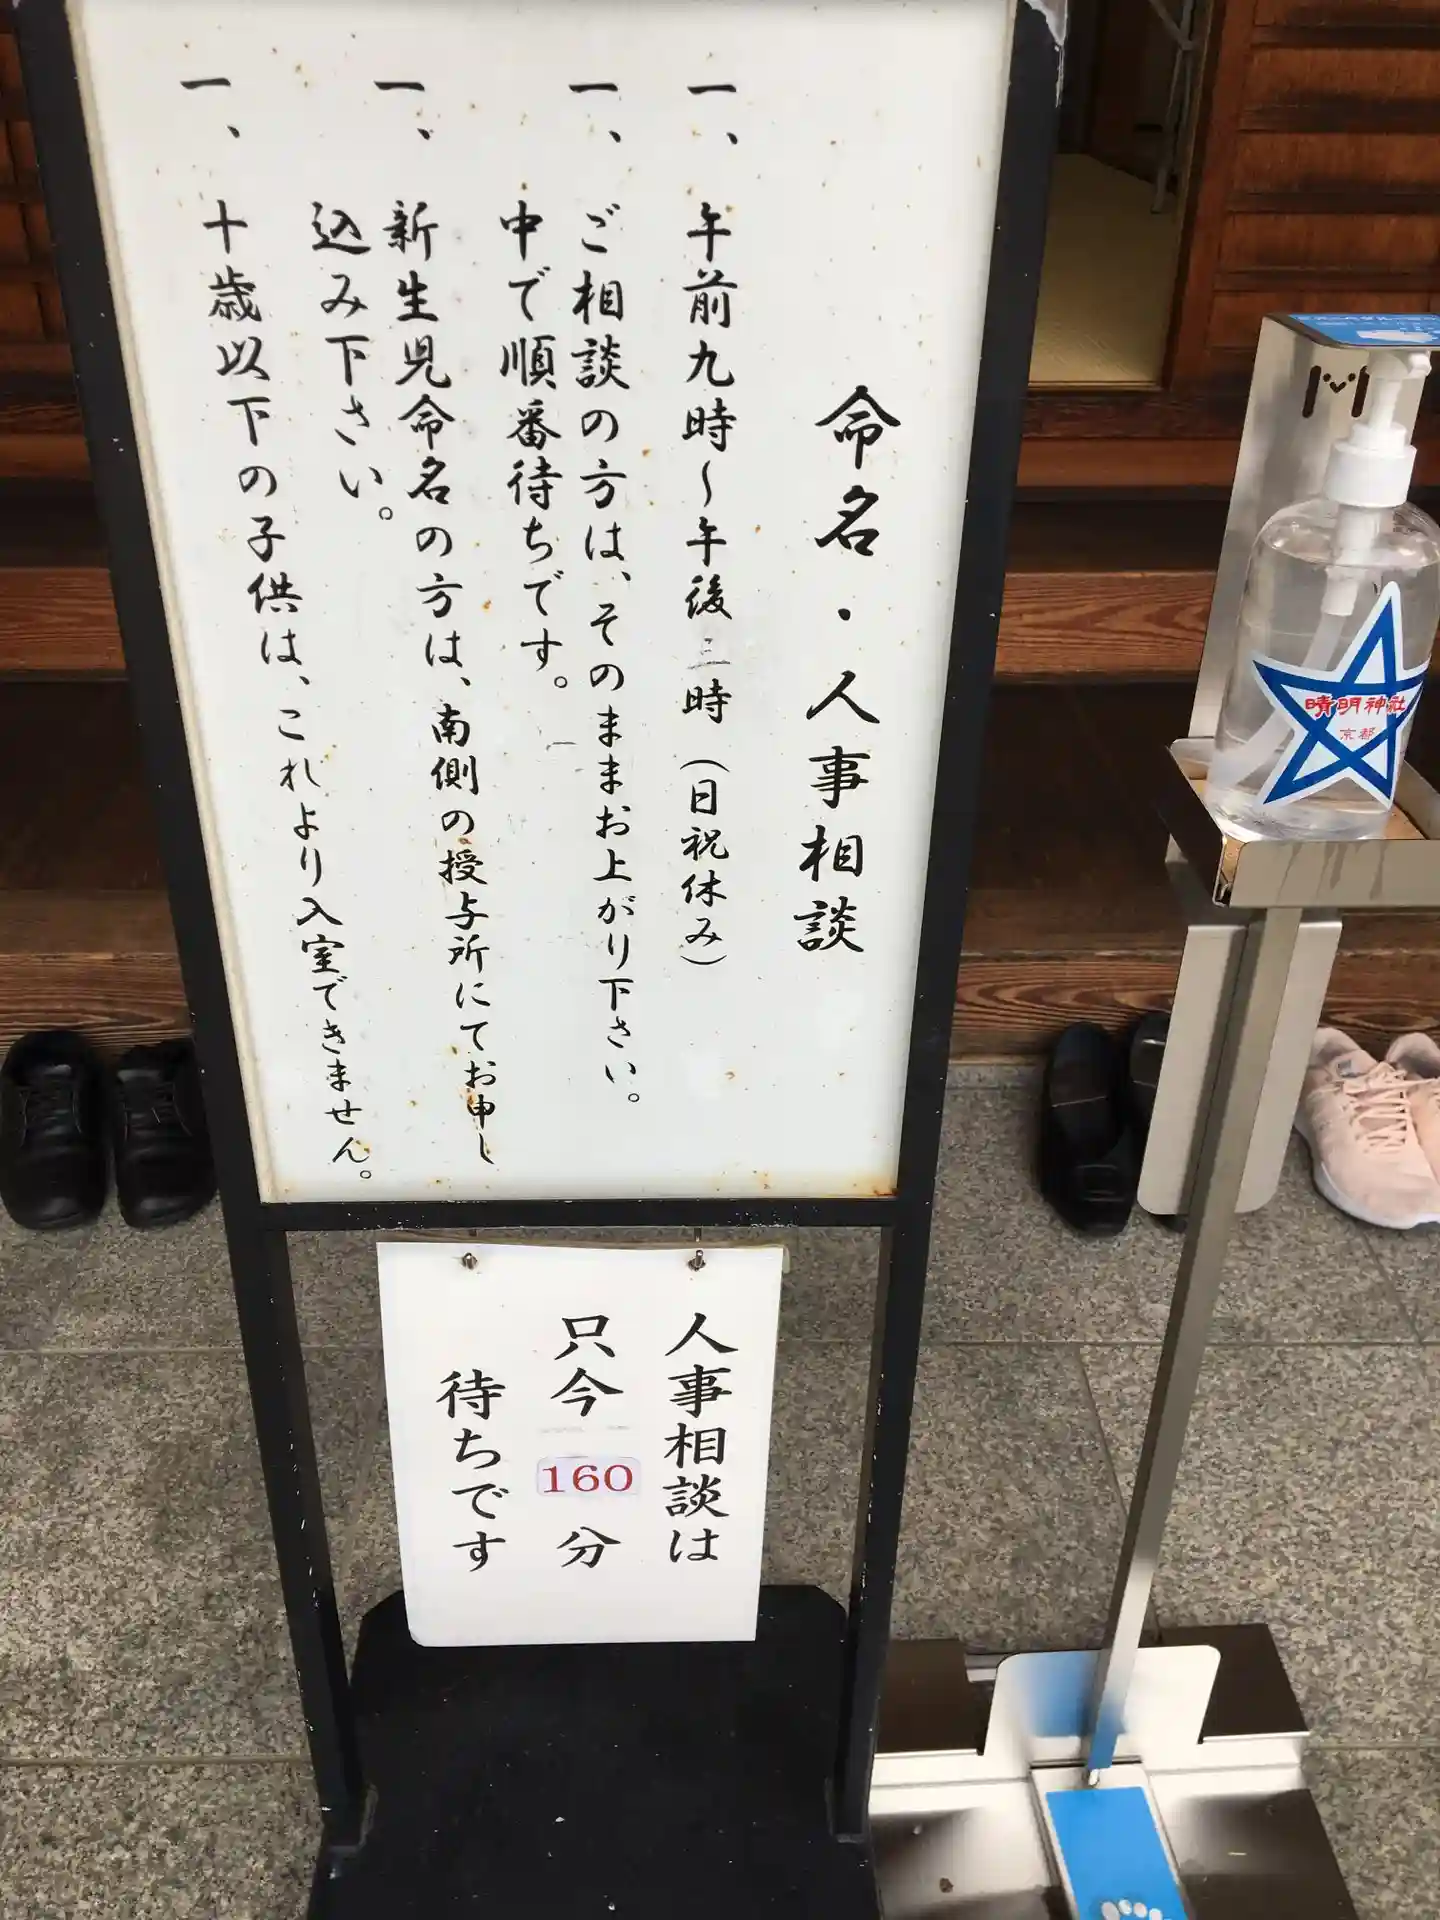 命名・人事相談
一、午前九時～午後三時（日祝休み）
一、ご相談の方は、そのままお上がり下さい。
中で順番待ちです。
一、新生児命名の方は、南側の授与所にてお申し
込み下さい。
一、十歳以下の子供は、これより入室できません。
人事相談は
只今160分
待ちです
晴明神社
京都